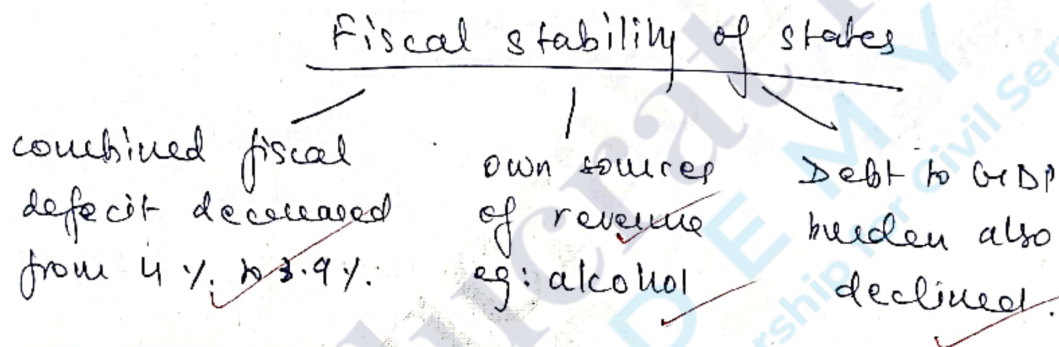 Fiscal stability of states
combined fiscal
defecit decreased
from 4 %. to 3.9 %.
own sources
of revenue
eg: alcohol
Debt to GDP
burden also
declined.